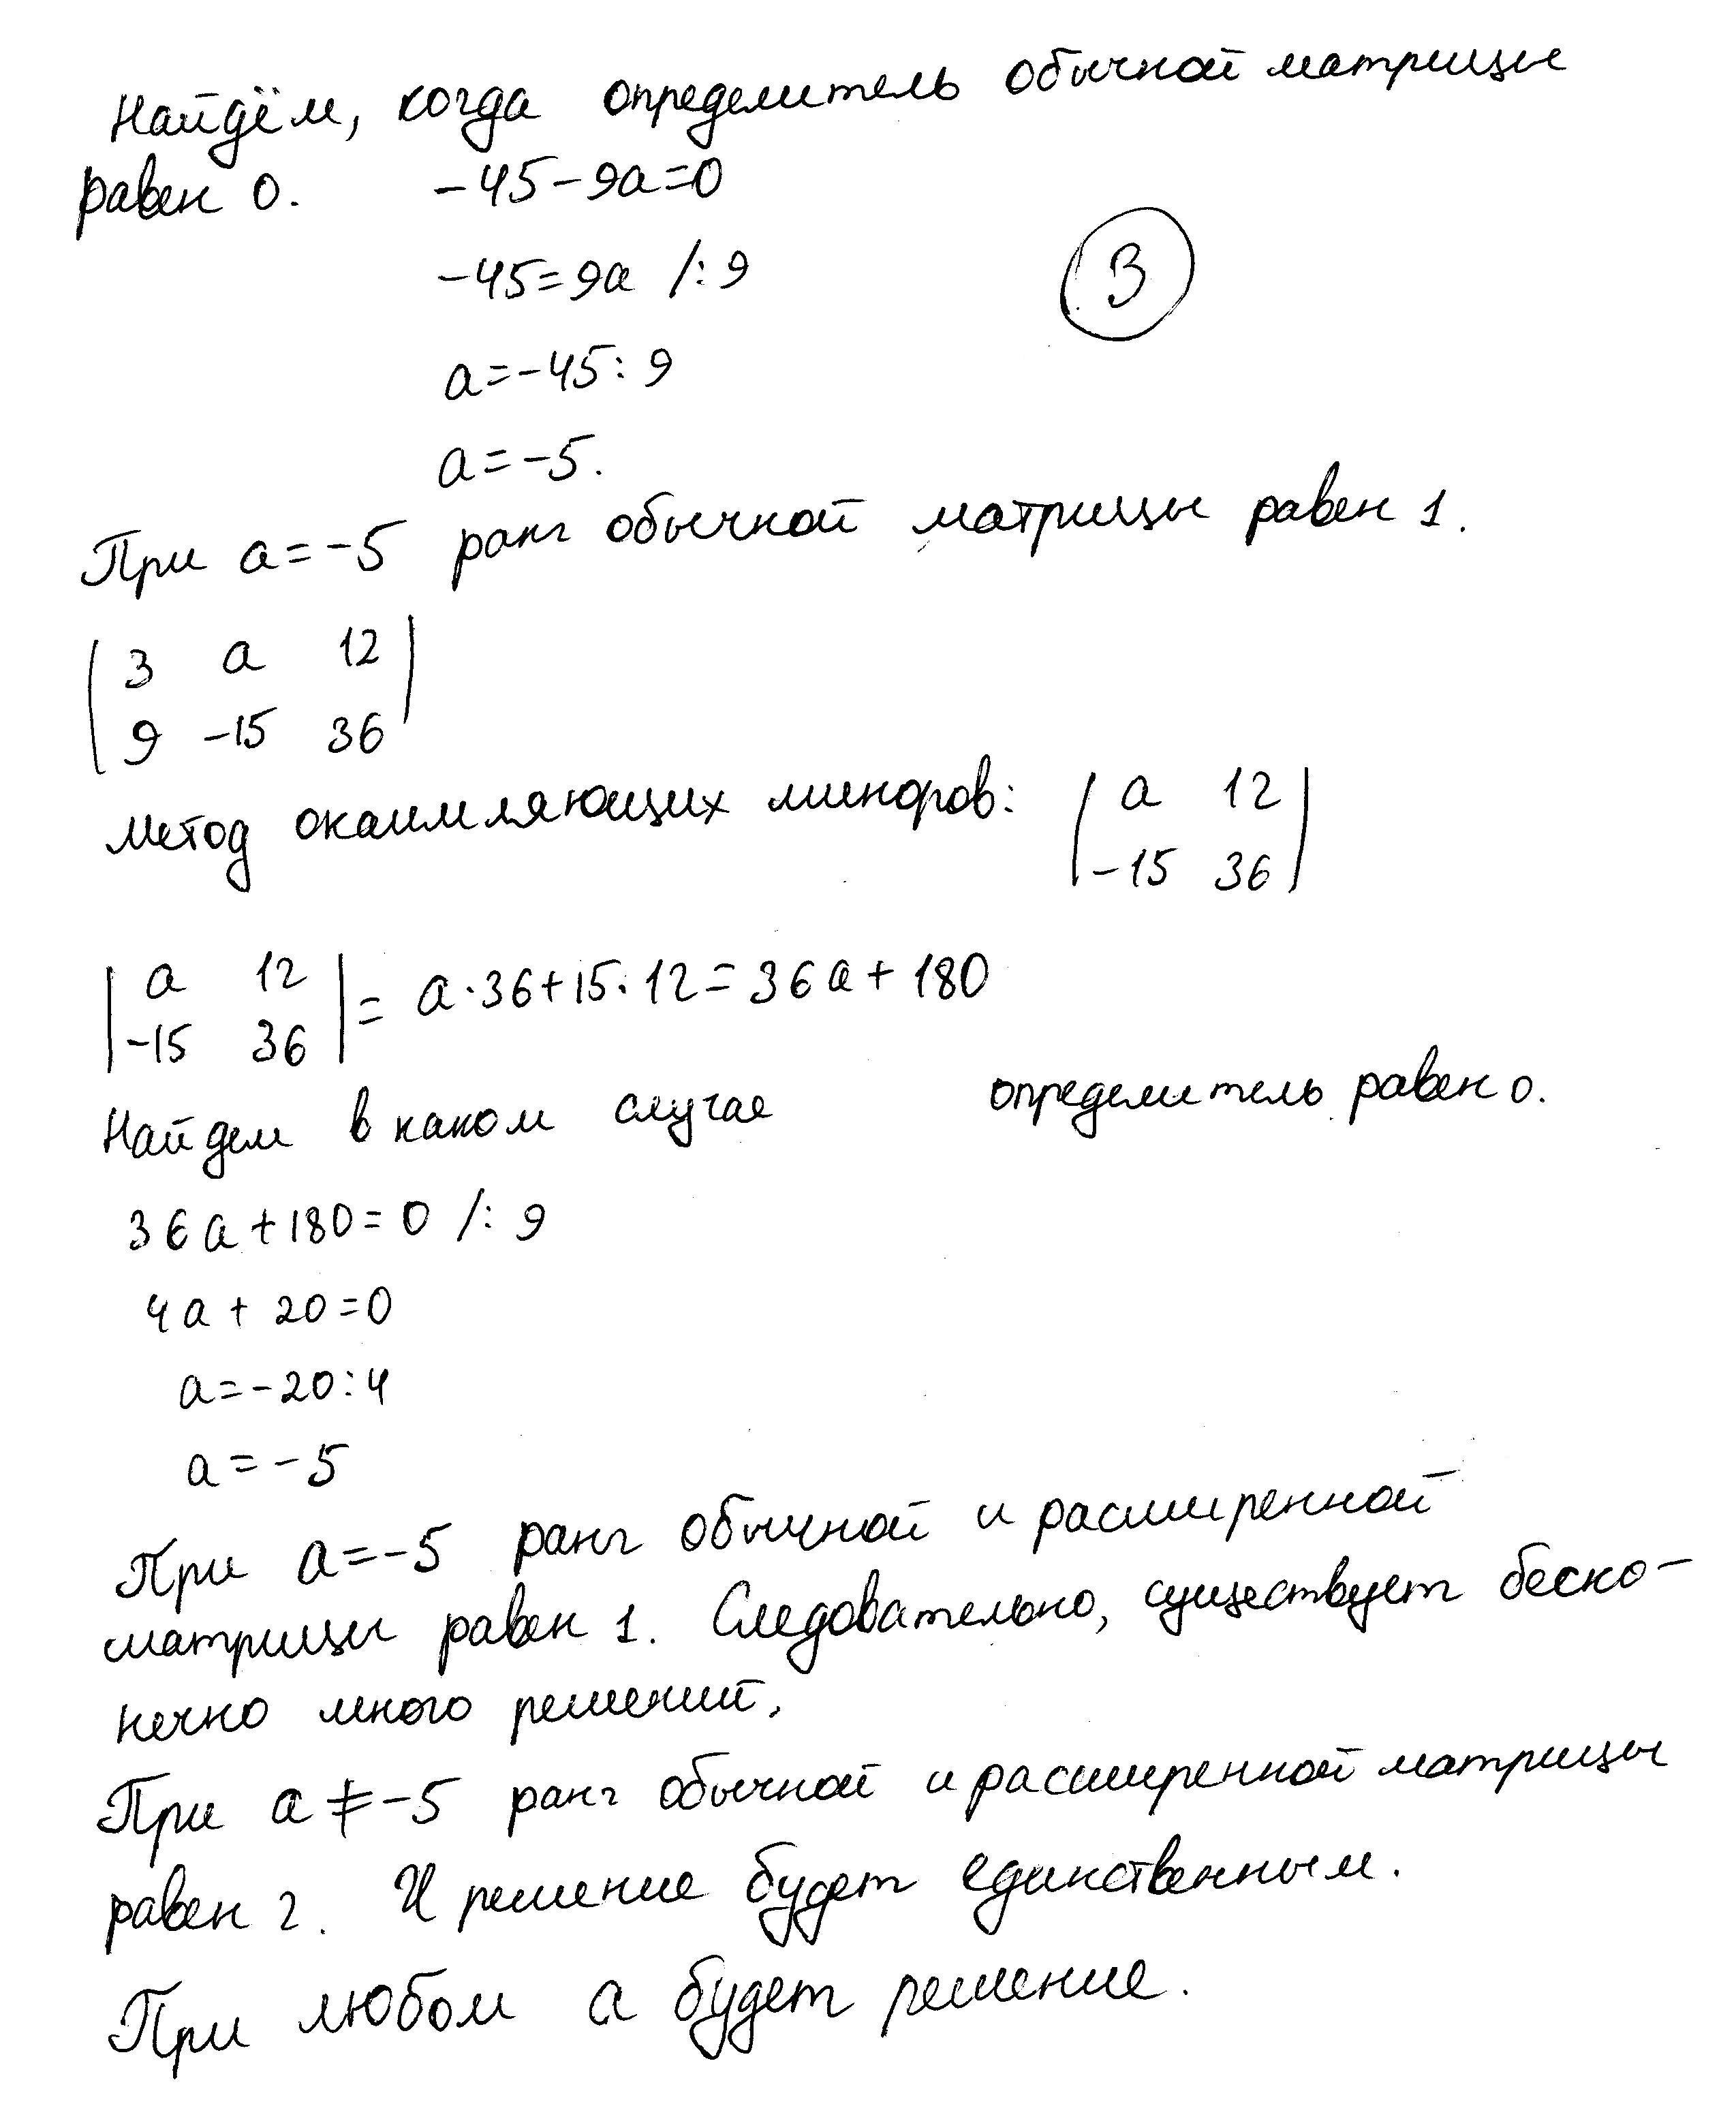 Найдём, когда определитель обычной матрицы
равен 0. -45-9a=0
3
-45=9a /:9
a=-45:9
a=-5.
При a=-5 ранг обычной матрицы равен 1.
3 a 12
9 -15 36
Метод окаимляющих миноров: | a 12 |
| -15 36 |
| a 12 | = a·36+15·12=36a+180
| -15 36 |
Найдем в каком случае определитель равен 0.
36a+180=0 /:9
4a+20=0
a=-20:4
a=-5
При a=-5 ранг обычной и расширенной
матрицы равен 1. Следовательно, существует беско-
нечно много решений.
При a≠-5 ранг обычной и расширенной матрицы
равен 2. И решение будет единственным.
При любом a будет решение.